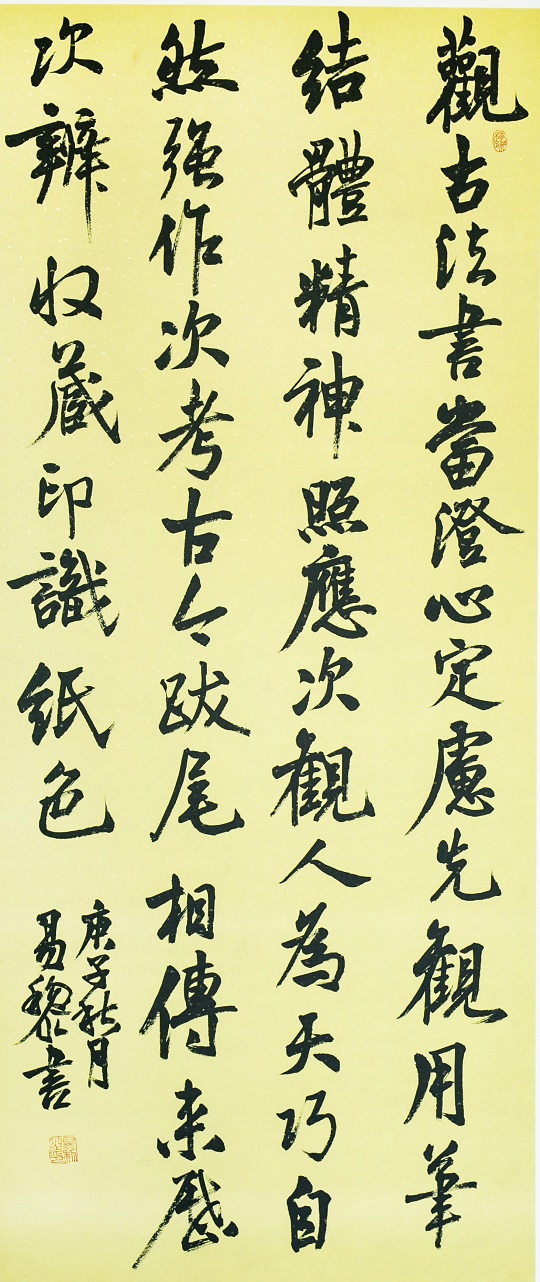 觀古法書當澄心定慮先觀用筆
結體精神照應次觀人為天巧自
然强作次考古今跋尾相傳来歷
次辨收藏印識紙色
庚子秋月
易黎書